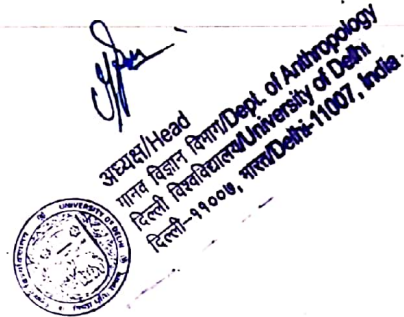 अध्यक्ष/Head
मानव विज्ञान विभाग/Dept. of Anthropology
दिल्ली विश्वविद्यालय/University of Delhi
दिल्ली-११००७, भारत/Delhi-11007, India
UNIVERSITY OF DELHI